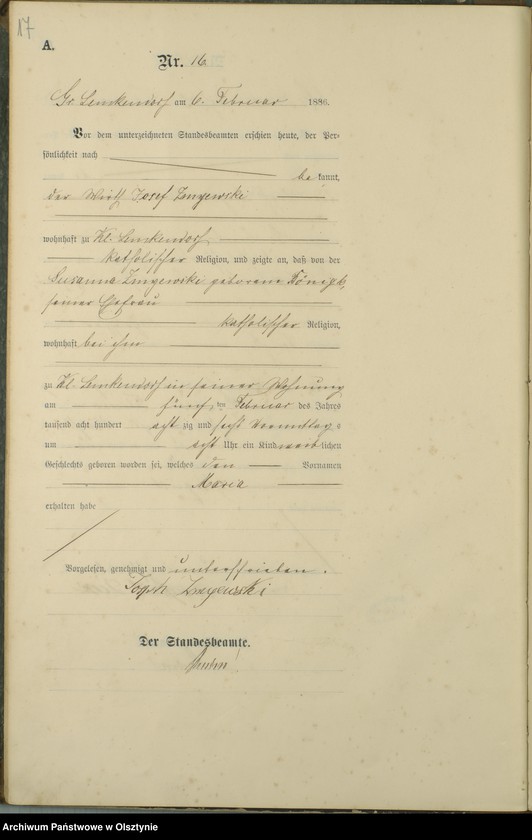 17
A.
Nr. 16
Gr. Lemkendorf am 6. Februar 1886.
Vor dem unterzeichneten Standesbeamten erschien heute, der Per=
sönlichkeit nach
bekannt,
der Wirth Josef
wohnhaft zu Kl. Lemkendorf
katholischer Religion, und zeigte an, daß von der
Susanna geborene
seiner Ehefrau
katholischer Religion,
wohnhaft bei ihm
zu Kl. Lemkendorf in seiner Wohnung
am fünften Februar des Jahres
tausend acht hundert achtzig und sechs Vormittags
um acht Uhr ein Kind weiblichen
Geschlechts geboren worden sei, welches den Vornamen
Maria
erhalten habe
Vorgelesen, genehmigt und unterschrieben.
Der Standesbeamte.
Archiwum Państwowe w Olsztynie